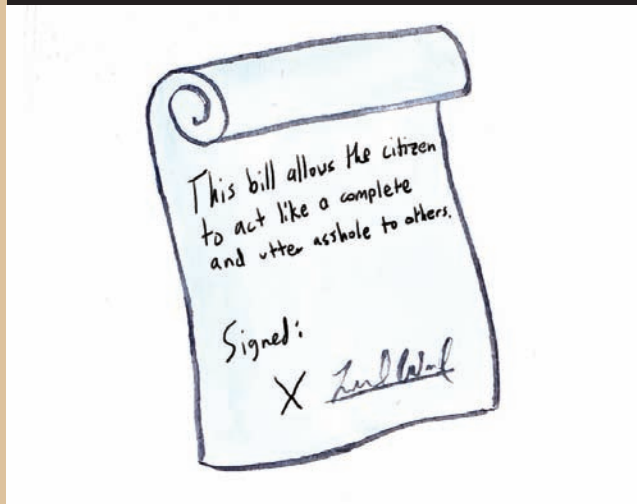 This bill allows the citizen
to act like a complete
and utter asshole to others.
Signed:
X